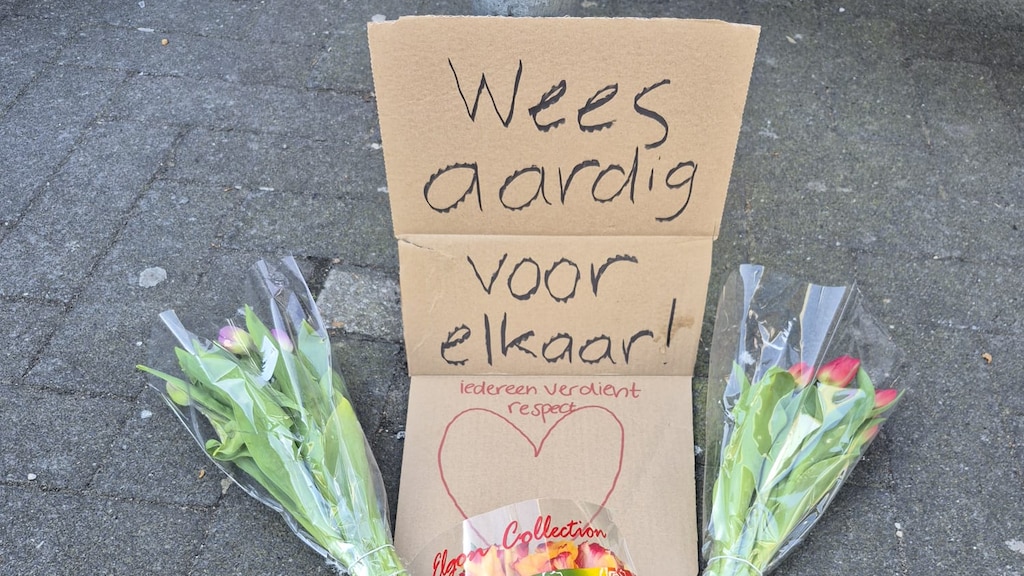 Wees
aardig
voor
elkaar!
iedereen verdient
respect
Elgon Collection